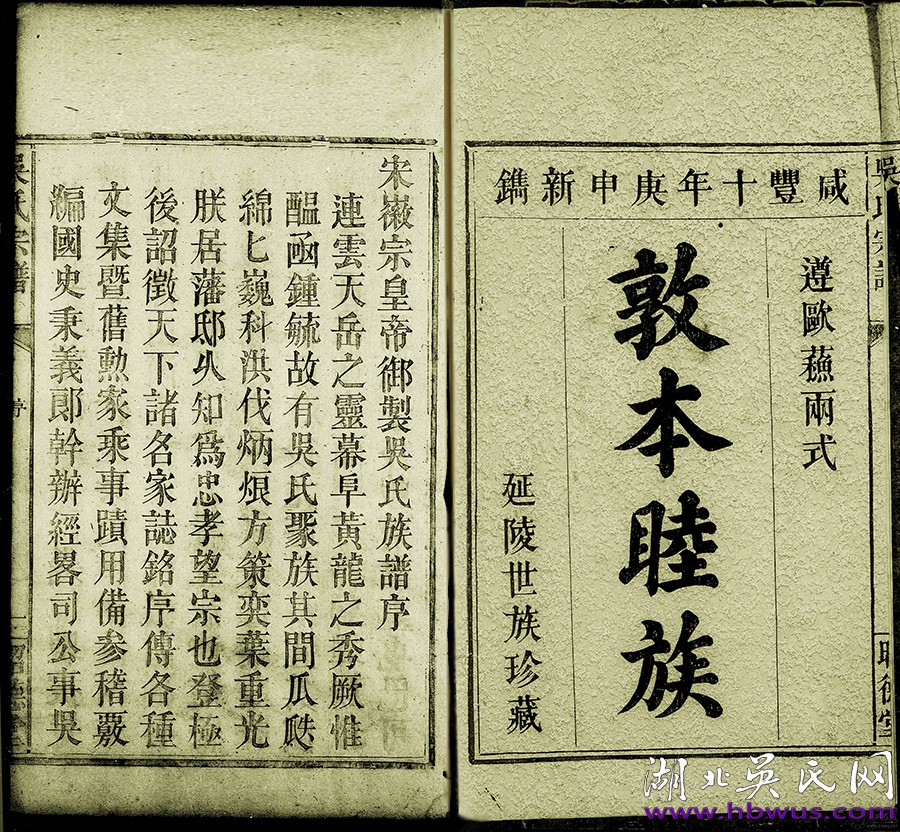 咸豐十年庚申新鐫
遵歐蘓兩式
敦本睦族
延陵世族珍藏
吳氏宗譜
宋嶶宗皇帝御製吳氏族譜序
連雲天岳之靈幕阜黃龍之秀厥惟
醖凾鍾毓故有吳氏聚族其間瓜瓞
綿匕巍科洪伐炳烺方策奕葉重光
朕居藩邸乆知爲忠孝望宗也登極
後詔徵天下諸名家誌銘序傳各種
文集暨舊勲家乘事蹟用備參稽覈
編國史秉義郎幹辦經畧司公事吳
吳氏宗譜
序
湖北吴氏网
www.hbwus.com